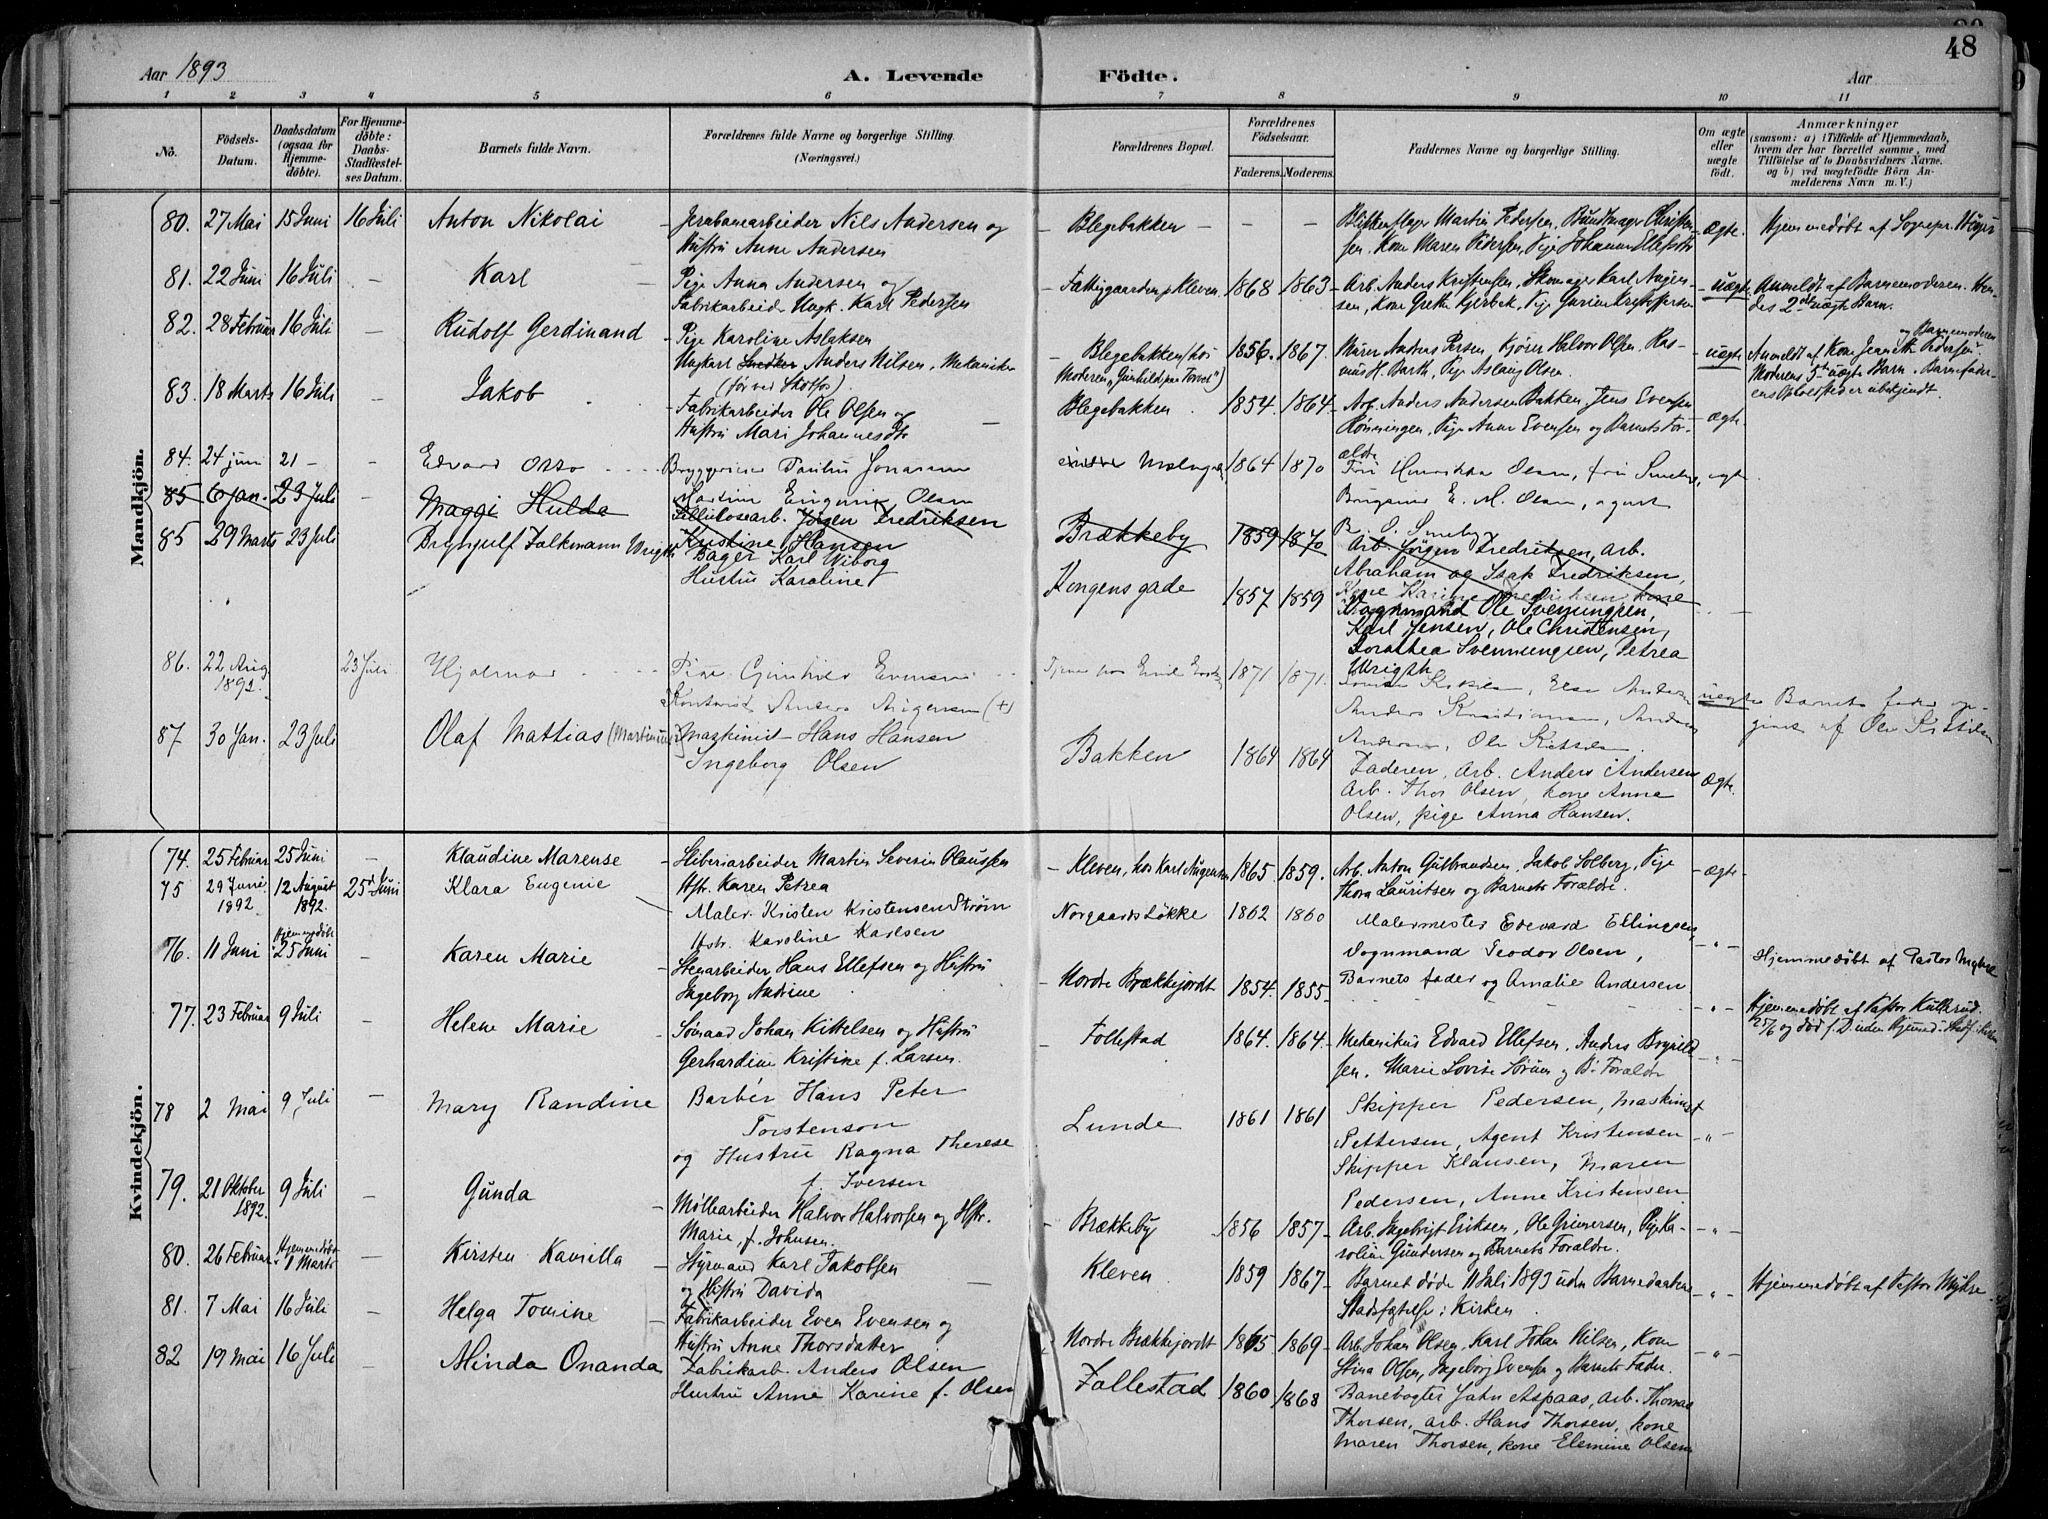 48
Aar 1893
A. Levende
Födte.
Aar
1 2 3 4 5 6 7 8 9 10 11
No.
Födsels-Datum.
Daabsdatum (ogsaa for Hjemmedöbte).
For Hjemmedöbte: Daabs-Stadfæstelses Datum.
Barnets fulde Navn.
Forældrenes fulde Navne og borgerlige Stilling.
(Næringsvei.)
Forældrenes Bopæl.
Forældrenes Födselsaar.
Faderens. Moderens.
Faddernes Navne og borgerlige Stilling.
Om ægte eller uægte födt.
Anmærkninger
(saasom: a) i Tilfælde af Hjemmedaab, hvem der har forrettet samme, med Tilföielse af to Daabsvidners Navne. og b) ved uægtefödte Börn Anmelderens Navn m. V.)
Mandkjön.
80. 27 Mai 15 Juni 16 Juli Anton Nikolai
Jernbanearbeider Nils Andersen og
Hustru Anne Andersen
Blegebakken – – –
Martin Pedersen, Bundtmager Christen-
sen, Kone Maren Pedersen, Pige
Ægte. Hjemmedøbt af Sognepr.
81. 22 Juni 16 Juli – Karl
Pige Anna Andersen og
Fabrikarbeider Ungk. Karl Pedersen
Fattiggaarden p. Kleven. 1868 1863
Arb. Anders Kristensen, Skomager Karl Augen-
sen, Kone Grethe Gjerbek, Pige Gurine Kristoffersen
uægte Anmeldt af Barnemoderen. Hen-
des 2det uægte Barn.
82. 28 Februar 16 Juli – Rudolf Gerdinand
Pige Karoline Aslaksen
Ungkarl Anders Nilsen, Mekaniker
(før ved Skotfos)
Blegebakken (hos
Moderen „Gunhild paa Torvet") 1856. 1867.
Murer Andreas Persen, Kjører Halvor Olsen, Ras-
mus H. Barth, Pige Aslaug Olsen.
uægte Anmeldt af Kone Jeanette Pedersen og Barnemoderen.
Moderens 5te uægte Barn. Barnefader-
ens Opholdsted er ubekjendt.
83. 18 Marts 16 Juli – Jakob
Fabrikarbeider Ole Olsen og
Hustru Mari Johannesdtr
Blegebakken 1854. 1864
Arb. Anders Andersen Bakken, Jens Evensen
Rønningen, Pige Anne Evensen og Barnets For-
ældre
ægte
84. 24 juni 21 – – Edvard Otto
Paulus Jonassen
Martine Eugenie Olsen
1864 1870
Olsen, fru Smeby,
E. M. Olsen, August
Smeby
ægte
85 6 jan. 23 Juli Maggi Hulda
Cellulosearb. Jørgen Fredriksen
Kristine Hansen
Brækkeby 1859 1870
Arb. Jørgen Fredriksen, arb.
Abraham og Isak Fredriksen,
Kone Karine Fredriksen kone
85 29 Marts 23 Juli Brynjulf Falkmann Wrigth
Bager Karl Wiborg
Hustru Karoline
Kongensgade 1857 1859
Vognmand Ole Svennungsen,
Karl Jensen, Ole Christensen,
Dorothea Svennungsen, Petrea
Wrigth
86. 22 Aug 1892. 23 Juli Hjalmar
Pige Gunhild Evensen
Anders Augensen (+)
Tjener hos Emil 1871 1871.
Else Andersen
Anders Kristiansen, Anders
Andersen, Ole Kittilsen.
uægte Barnets fader op-
given af Ole Kittilsen
87 30 Jan. 23 Juli Olaf Mattias (Martinius)
Maskinist Hans Hansen
Ingeborg Olsen
Bakken 1864 1864
Faderen, Arb. Anders Andersen
Arb. Thor Olsen, kone Anna
Olsen, pige Anna Hansen.
Ægte.
Kvindekjön.
74. 25 Februar 25 Juni – Klaudine Marense
Sliberiarbeider Martin Severin Olaussen
Hstr. Karen Petrea
Kleven, hos Karl Augensen 1865 1859.
Arb. Anton Gulbrandsen, Jakob Solberg, Pige
Thora Lauritsen og Barnets Forældre.
ægte
75 29 Juni 1892 12 August 1892. 25 Juni Klara Eugenie
Maler Kristen Kristensen Strøm
Hstr. Karoline Karlsen
Norgaardsløkke 1862 1860
Malermester Edevard Ellingsen,
Vognmand Teodor Olsen,
Barnets fader og Amalie Andersen
– „ –
76. 11 Juni Hjemmedøbt 25 Juni Karen Marie
Stenarbeider Hans Ellefsen og Hustru
Ingeborg Andrine
Nordre Brækkejordt 1854. 1855
– „ –
Hjemmedøbt af Pastor Myhre
77. 23 Februar 9 Juli Helene Marie
Sømand Johan Kittelsen og Hustru
Gerhardine Kristine f. Larsen.
Follestad 1864. 1864.
Mekanikus Edvard Ellefsen, Anders
sen, Marie Lovise Sørum og B. Forældre
– „ –
Hjemmedøbt af Pastor
78 2 Mai 9 Juli – Mary Randine
Barbér Hans Peter
Torstenson
og Hustru Ragna Therese
f. Iversen
Lunde 1861 1861
Skipper Pedersen, Maskinist
Pettersen, Agent Kristensen
Skipper Klausen, Maren
Pedersen, Anne Kristensen
– „ –
79. 21 Oktober 1892. 9 Juli – Gunda
Møllearbeider Halvor Halvorsen og Hstr.
Marie, f. Johnsen.
Brækkeby 1856 1857
Arb. Ingebrigt Eriksen, Ole Grimersen, Pige Ka-
roline Gundersen og Barnets Forældre.
– „ –
80. 26 Februar Hjemmedøbt 1 Marts – Kirsten Kamilla
Styrmand Karl Jakobsen
og Hustru Davida
Kleven 1859 1867
Barnet døde 11 Juli 1893 uden Barnedaabens
Stadfæstelse i Kirken
– „ –
Hjemmedøbt af Pastor Myhre.
81. 7 Mai 16 Juli – Helga Tomine
Fabrikarbeider Even Evensen og
Hustru Anne Thorsdatter
Nordre Brækkejordt 1865 1869
Arb. Johan Olsen, Karl Johan Nilsen, Kone
Stina Olsen, Ingeborg Evensen og Barnets Fader.
– „ –
82 19 Mai 16 Juli – Alinda Onanda
Fabrikarb. Anders Olsen
Hustru Anne Karine f. Olsen
Follestad 1860 1868
Banevogter Jahn Aspaas, arb. Thomas
Thorsen, arb. Hans Thorsen, kone
Maren Thorsen, kone Elemine Olsen